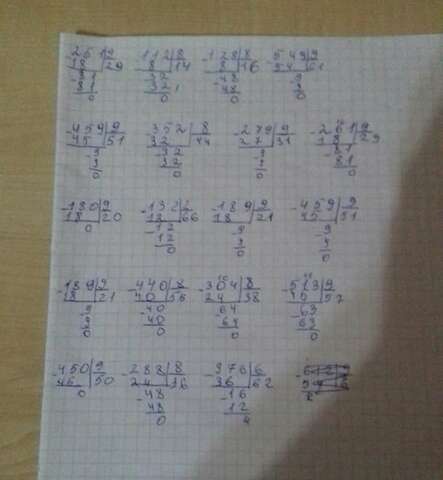 261|9 112|8 128|8 549|9
18 |29 8 |14 8 |16 54 |61
81 32 48 9
81 32 48 9
0 0 0 0
459|9 352|8 279|9 261|9
45 |51 32 |44 27 |31 18 |29
9 32 9 81
9 32 9 81
0 0 0 0
180|9 132|2 189|9 459|9
18 |20 12 |66 18 |21 45 |51
0 12 9 9
12 9 9
0 0 0
189|9 440|8 304|8 513|9
18 |21 40 |55 24 |38 45 |57
9 40 64 63
9 40 64 63
0 0 0 0
450|9 288|8 376|6
45 |50 24 |36 36 |62
0 48 16
48 12
0 4